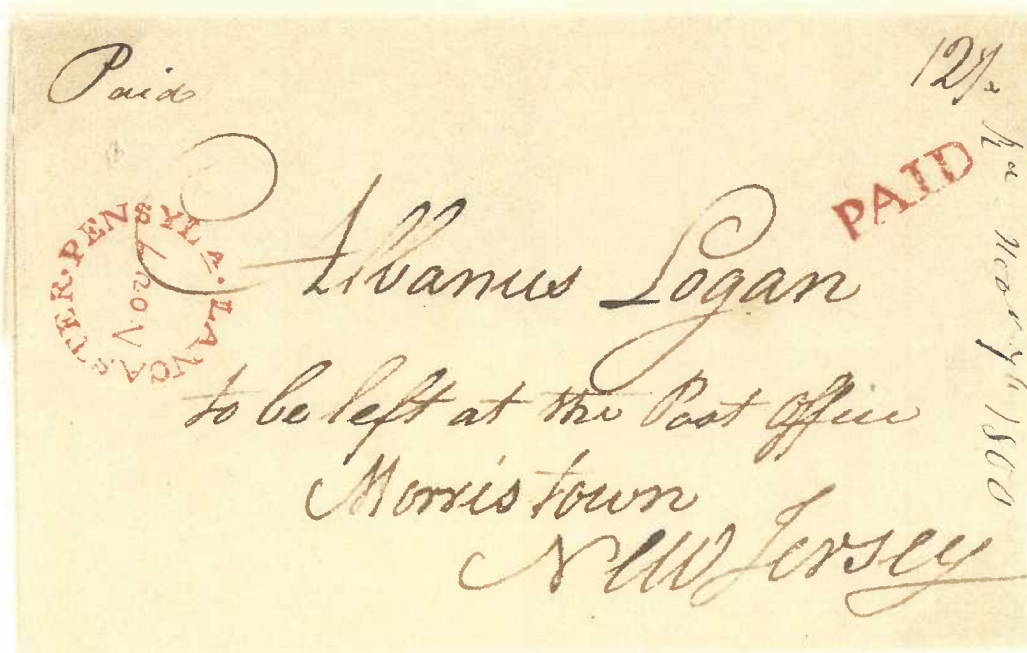 Paid
12½
PAID
LANCASTER·PENSYLA·
Nov
Albanus Logan
to be left at the Post Office
Morristown
New Jersey
1800